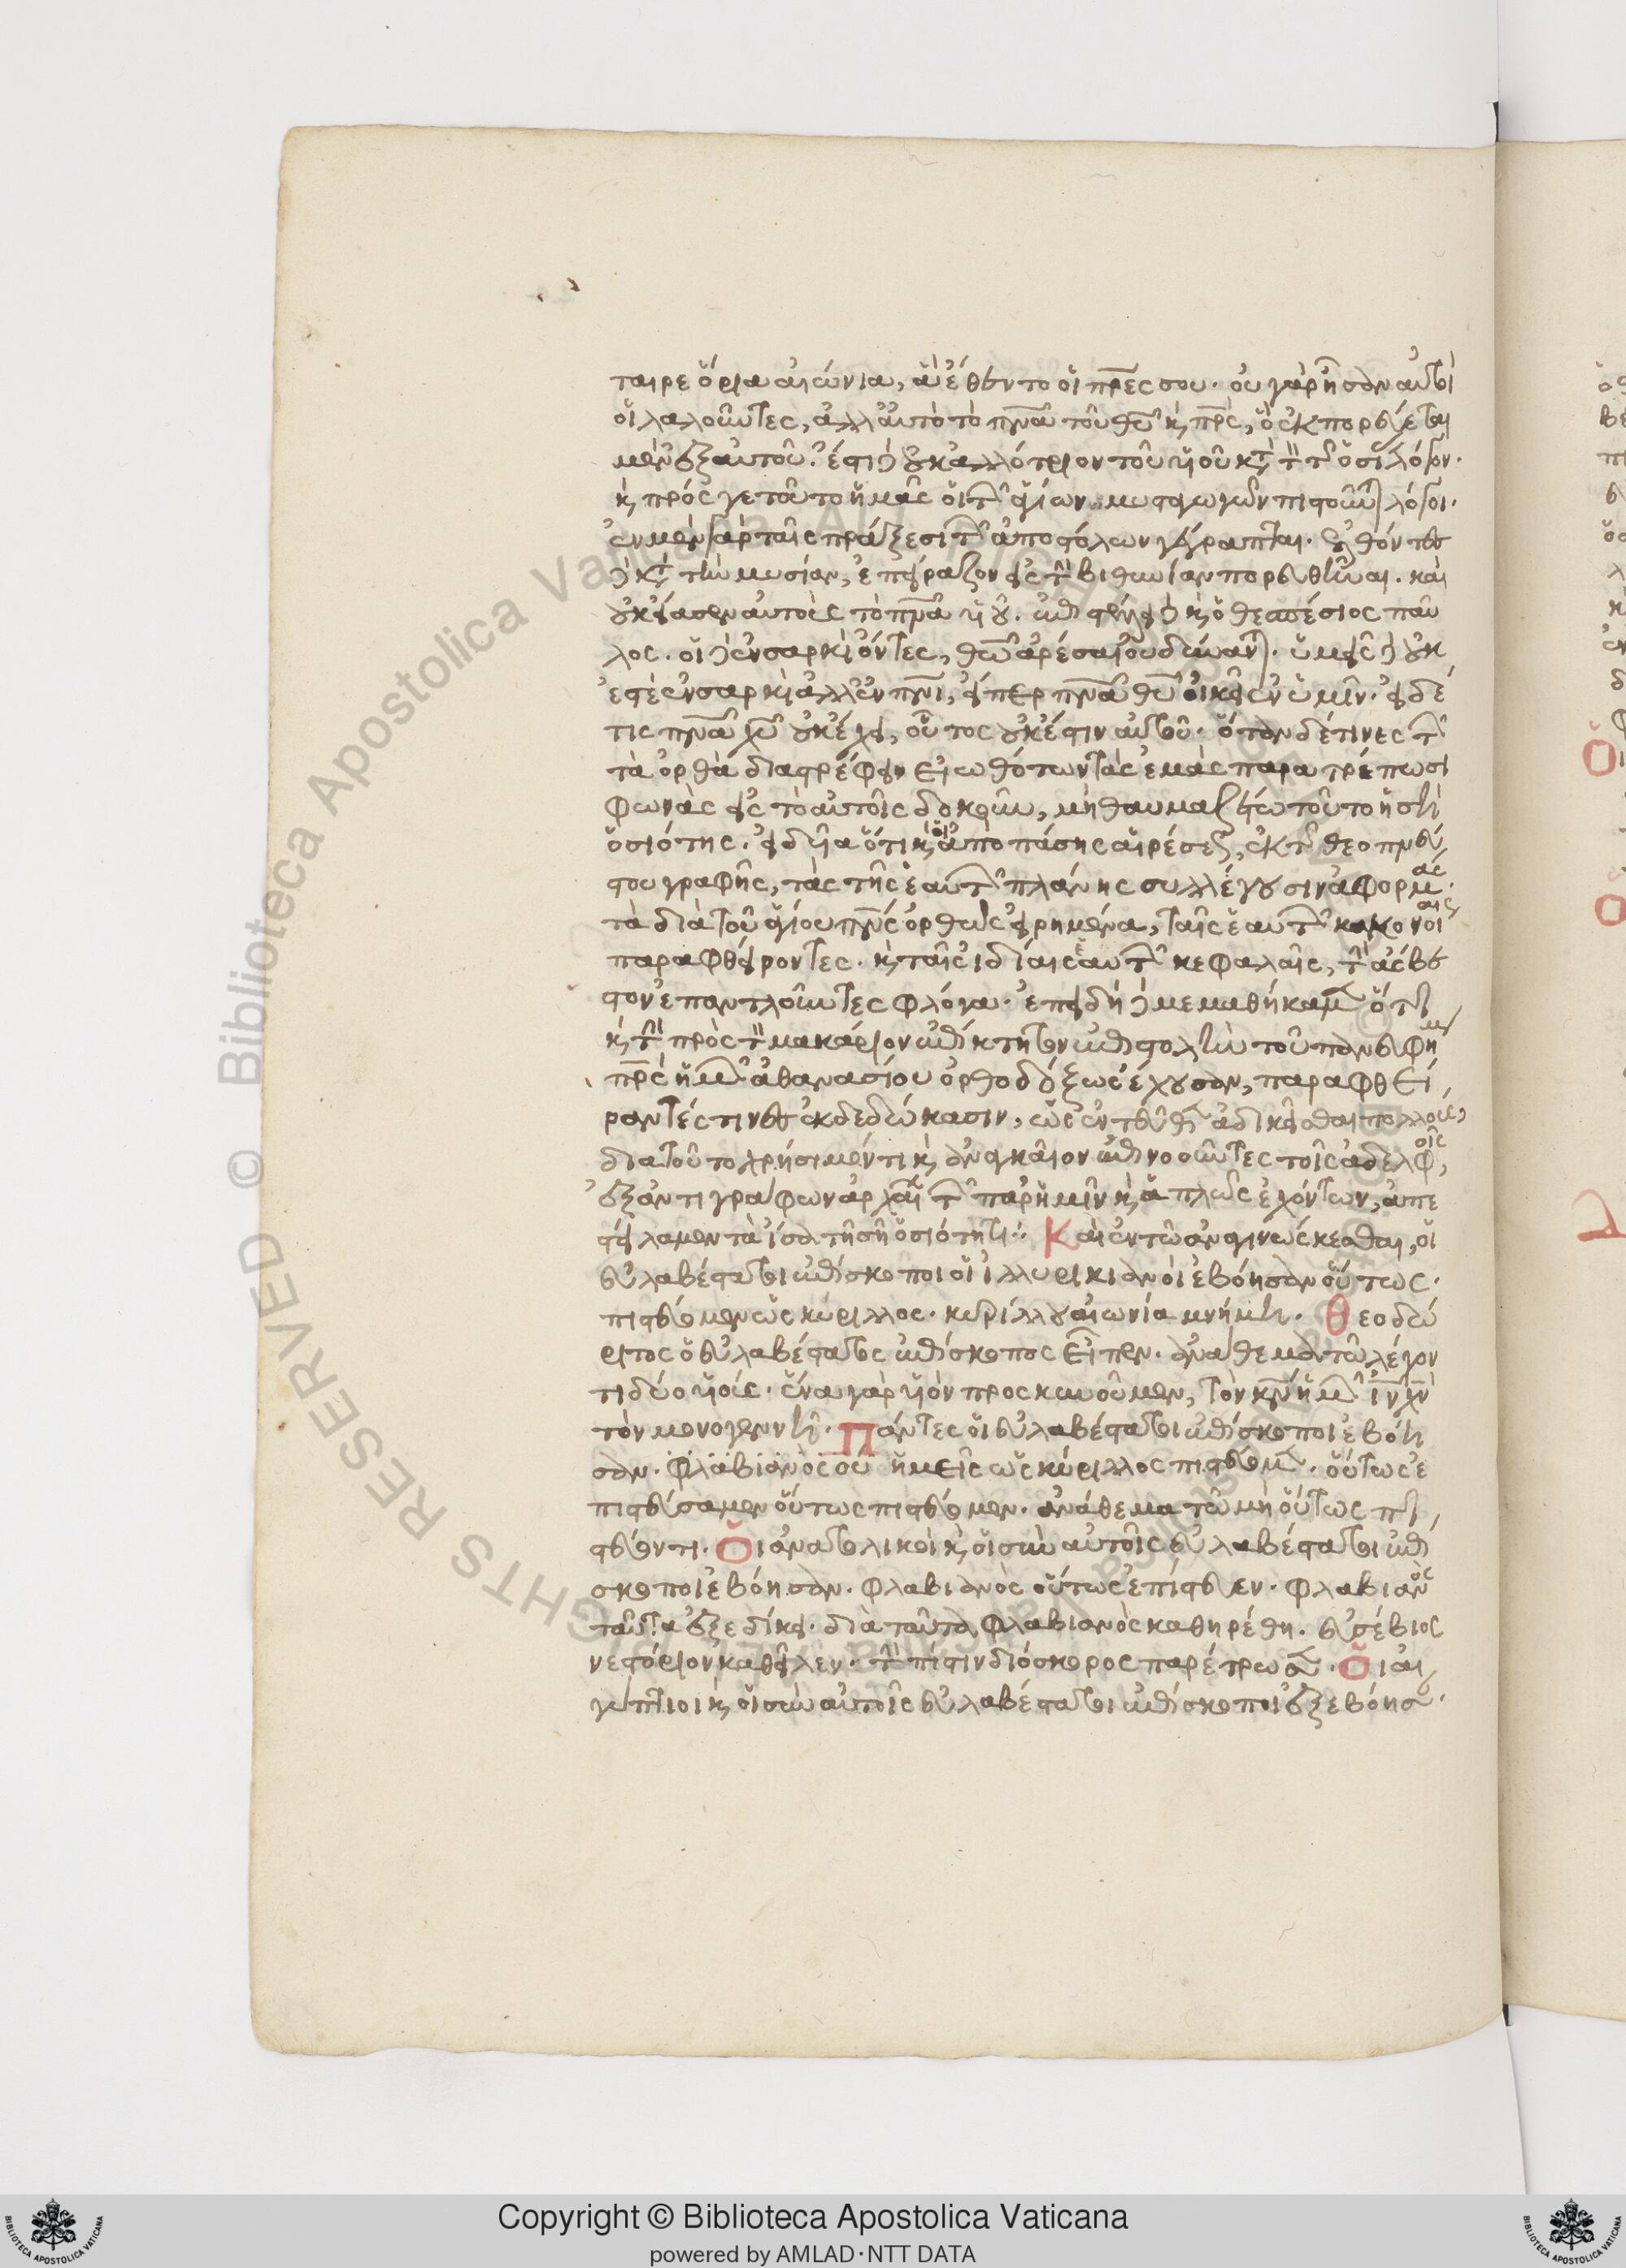 ταιρε ὅρια αἰώνια, ἃ ἔθεντο οἱ πρες σου. οὐ γὰρ ἦσαν αὐτοὶ
οἱ λαλοῦντες, ἀλλ' αὐτὸ τὸ πνα τοῦ θυ κ πρς, ὃ ἐκπορεύεται
μὲν ἐξ αὐτοῦ. ἔστι δὲ οὐκ ἀλλότριον τοῦ υἱοῦ κτ τὸν τῆς οὐσίας λόγον.
κ πρός γε τοῦτο ἡμᾶς οἱ τῶν ἁγίων μυσταγωγῶν πιστοῦνται λόγοι.
ἐν μὲν γὰρ ταῖς πράξεσι τῶν ἀποστόλων γέγραπται. ἐλθόντες
δὲ κτ τὴν μυσίαν, ἐπείραζον εἰς τὴν βιθυνίαν πορευθῆναι. καὶ
οὐκ εἴασεν αὐτοὺς τὸ πνα ιυ. ἐπιστέλλει δὲ κ ὁ θεσπέσιος παῦ
λος. οἱ δὲ ἐν σαρκὶ ὄντες, θω ἀρέσαι οὐ δύνανται. ὑμεῖς δὲ οὐκ
ἐστὲ ἐν σαρκὶ ἀλλ' ἐν πνι, εἴπερ πνα θυ οἰκεῖ ἐν ὑμῖν. εἰ δέ
τις πνα χυ οὐκ ἔχει, οὗτος οὐκ ἔστιν αὐτοῦ. ὅταν δέ τινες τῶν
τὰ ὀρθὰ διαστρέφειν εἰωθότων τὰς ἐμὰς παρατρέπωσι
φωνὰς εἰς τὸ αὐτοῖς δοκοῦν, μὴ θαυμαζέτω τοῦτο ἡ σὴ
ὁσιότης. εἰδυῖα ὅτι κ οἱ ἀπὸ πάσης αἱρέσεως, ἐκ τῆς θεοπνεύ
στου γραφῆς, τὰς τῆς ἑαυτῶν πλάνης συλλέγουσιν ἀφορμάς.
τὰ διὰ τοῦ ἁγίου πνς ὀρθῶς εἰρημένα, ταῖς ἑαυτῶν κακονοίαις
παραφθείροντες. κ ταῖς ἰδίαις ἑαυτῶν κεφαλαῖς, τὴν ἄσβε
στον ἐπαντλοῦντες φλόγα. ἐπειδὴ δὲ μεμαθήκαμεν ὅτι
κ τὴν πρὸς τὸν μακάριον ἐπίκτητον ἐπιστολὴν τοῦ πανευφήμου
πρς ἡμῶν ἀθανασίου ὀρθοδόξως ἔχουσαν, παραφθεί
ραντές τινες ἐκδεδώκασιν, ὡς ἐντεῦθεν ἀδικεῖσθαι πολλούς,
διατοῦτο χρήσιμόν τι κ ἀναγκαῖον ἐπινοοῦντες τοῖς ἀδελφοῖς,
ἐξ ἀντιγράφων ἀρχαίων τῶν παρ' ἡμῖν κ ἁπλῶς ἐχόντων, ἀπε
στείλαμεν τὰ ἴσα τῆ σῆ ὁσιότητι. Καὶ ἐν τῶ ἀναγινώσκεσθαι, οἱ
εὐλαβέστατοι ἐπίσκοποι οἱ ἰλλυρικιανοὶ ἐβόησαν οὕτως.
πιστεύομεν ὡς κύριλλος. κυρίλλου αἰωνία μνήμη. Θεοδώ
ριτος ὁ εὐλαβέστατος ἐπίσκοπος εἶπεν. ἀνάθεμα τῶ λέγον
τι δύο υἱούς. ἕνα γὰρ υἱὸν προσκυνοῦμεν, τὸν κν ἡμῶν ιν χν
τὸν μονογεννῆ. Πάντες οἱ εὐλαβέστατοι ἐπίσκοποι ἐβόη
σαν. φλαβιανὸς οὐ ἡμεῖς ὡς κύριλλος πιστεύομεν. οὕτως ἐ
πιστεύσαμεν οὕτως πιστεύομεν. ἀνάθεμα τῶ μὴ οὕτως πι
στεύοντι. Οἱ ἀνατολικοὶ κ οἱ σὺν αὐτοῖς εὐλαβέστατοι ἐπί
σκοποι ἐβόησαν. φλαβιανὸς οὕτως ἐπίστευεν. φλαβιανὸς
ταῦτα ἐξεδίκει. διὰ ταῦτα φλαβιανὸς καθηρέθη. εὐσέβιος
νεστόριον καθεῖλεν. τὴν πίστιν διόσκορος παρέτρωσεν. Οἱ αἰ
γύπτιοι κ οἱ σὺν αὐτοῖς εὐλαβέστατοι ἐπίσκοποι ἐξεβόησαν.
© Biblioteca Apostolica Vaticana
RIGHTS RESERVED
Copyright © Biblioteca Apostolica Vaticana
powered by AMLAD·NTT DATA